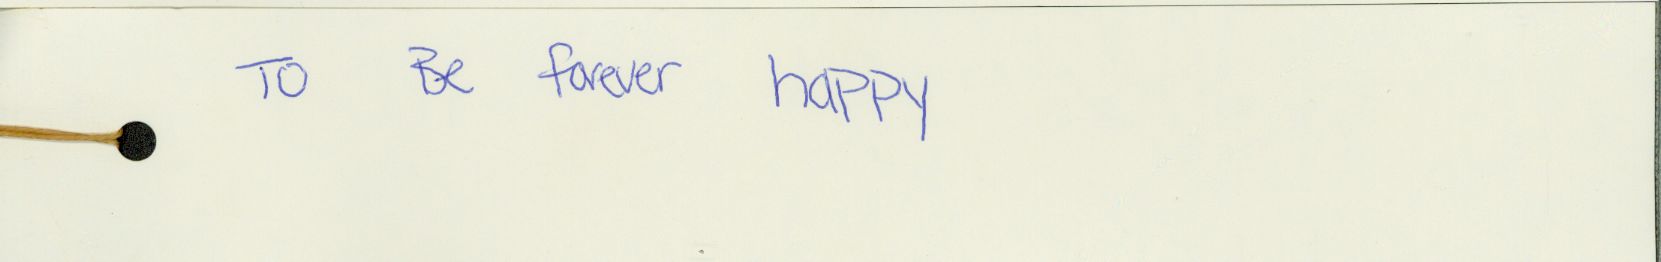 To Be forever happy